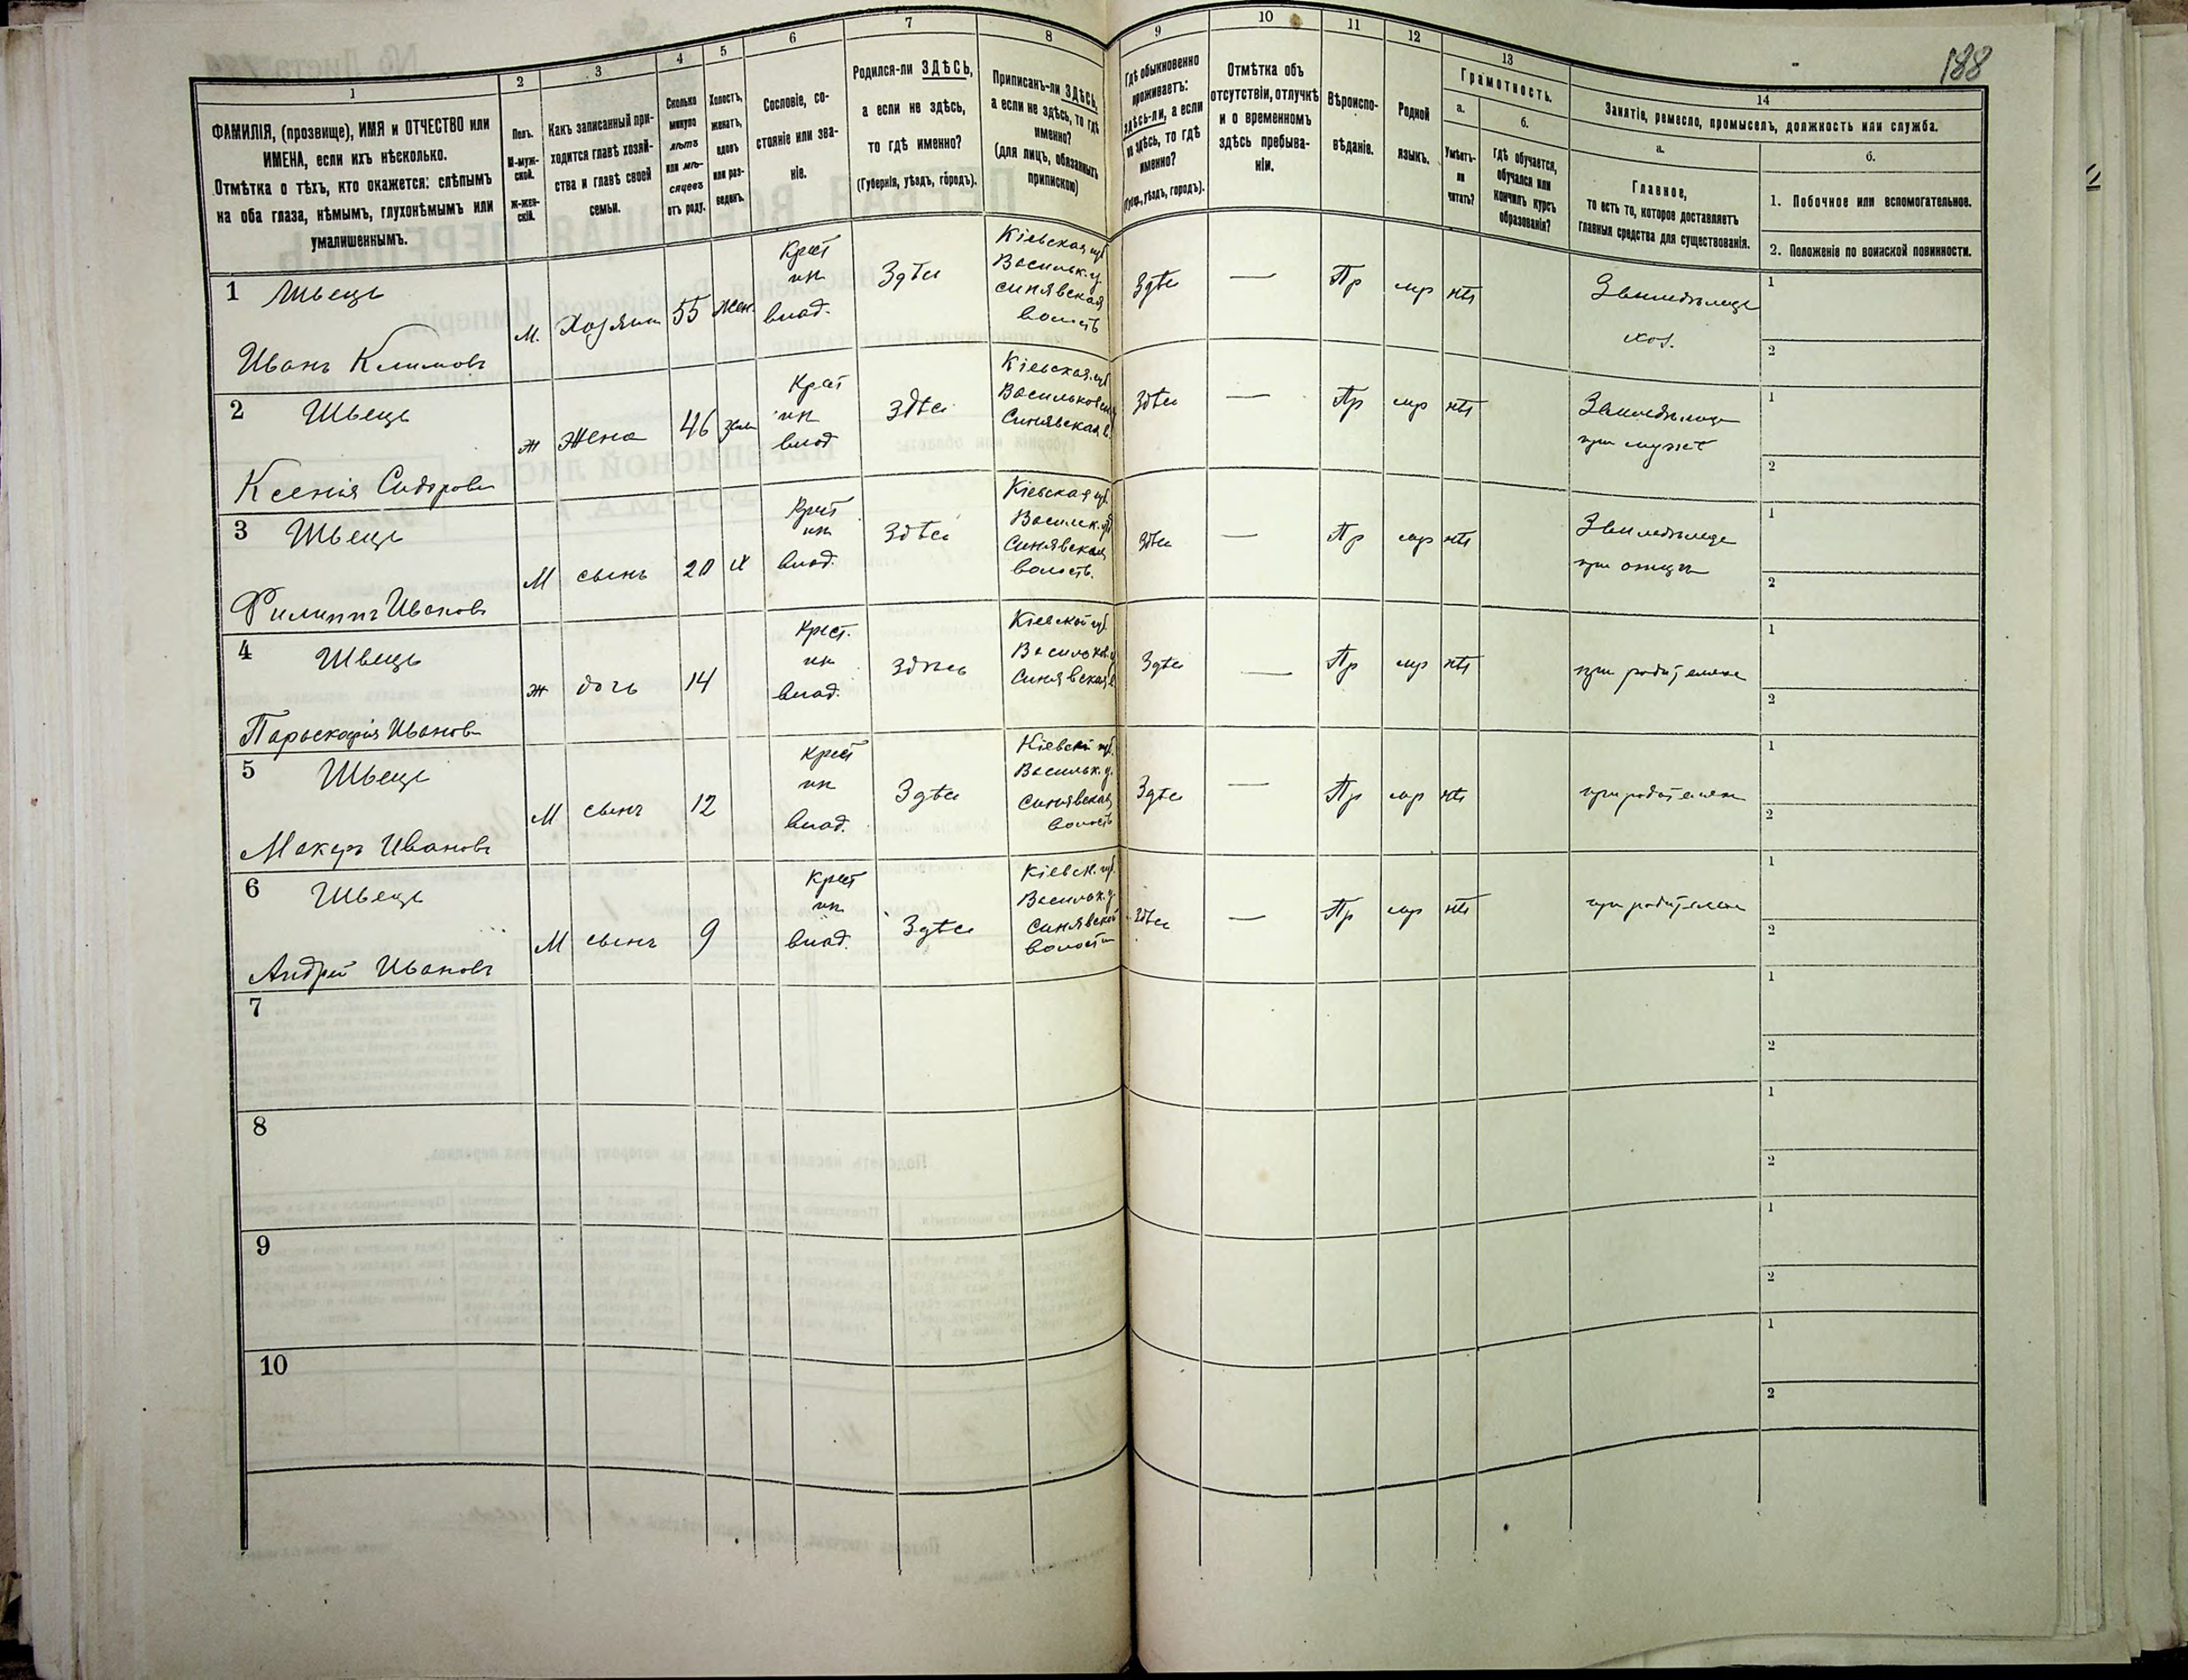 188
1
2
3
4
5
6
7
8
9
10
11
12
13
14
ФАМИЛІЯ, (прозвище), ИМЯ и ОТЧЕСТВО или
ИМЕНА, если ихъ нѣсколько.
Отмѣтка о тѣхъ, кто окажется: слѣпымъ
на оба глаза, нѣмымъ, глухонѣмымъ или
умалишеннымъ.
Полъ.
М-муж-
ской.
Ж-жен-
скій.
Какъ записанный при-
ходится главѣ хозяй-
ства и главѣ своей
семьи.
Сколько
минуло
лѣтъ
или мѣ-
сяцевъ
отъ роду.
Холостъ,
женатъ,
вдовъ
или раз-
веденъ.
Сословіе, со-
стояніе или зва-
ніе.
Родился-ли ЗДѢСЬ,
а если не здѣсь,
то гдѣ именно?
(Губернія, уѣздъ, городъ).
Приписанъ-ли ЗДѢСЬ,
а если не здѣсь, то гдѣ
именно?
(для лицъ, обязанныхъ
припискою)
Гдѣ обыкновенно
проживаетъ:
здѣсь-ли, а если
не здѣсь, то гдѣ
именно?
(Губ., уѣздъ, городъ).
Отмѣтка объ
отсутствіи, отлучкѣ
и о временномъ
здѣсь пребыва-
ніи.
Вѣроиспо-
вѣданіе.
Родной
языкъ.
Грамотность.
а.
Умѣетъ-
ли
читать?
б.
Гдѣ обучается,
обучался или
кончилъ курсъ
образованія?
Занятіе, ремесло, промыселъ, должность или служба.
а.
Главное,
то есть то, которое доставляетъ
главныя средства для существованія.
б.
1. Побочное или вспомогательное.
2. Положеніе по воинской повинности.
1 Швецъ
Иванъ Климовъ
М. Хозяинъ 55 жен.
Крест
ин
влад.
Здѣсь
Кіевская губ
Васильк. у.
Синявская
волость
Здѣсь — Пр мр нѣт
Земледѣлецъ
хоз.
1
2
2 Швецъ
Ксенія Сидорова
Ж Жена 46 зам
Крест
ин
влад
Здѣсь
Кіевская губ
Васильковск
Синявская в.
Здѣсь — Пр мр нѣт
Земледѣлецъ
при мужѣ
1
2
3 Швецъ
Филиппъ Ивановъ
М сынъ 20 х
Крест
ин
влад.
Здѣсь
Кіевская губ
Васильк. у.
Синявская
волость.
Здѣсь — Пр мр нѣт
Земледѣлецъ
при отцѣ
1
2
4 Швецъ
Параскофія Иванов
ж дочь 14
Крест.
ин
влад.
Здѣсь
Кіевской губ.
Васильков. у
Синявская в
Здѣсь — Пр мр нѣт
при родителяхъ
1
2
5 Швецъ
Макаръ Ивановъ
М сынъ 12
Крест
ин
влад.
Здѣсь
Кіевск губ.
Васильк. у.
Синявская
волость
Здѣсь — Пр мр нѣт
при родителяхъ
1
2
6 Швецъ
Андрей Ивановъ
М сынъ 9
Крест
ин
влад.
Здѣсь
Кіевск. губ.
Васильк. у.
Синявской
волости
Здѣсь — Пр мр нѣт
при родителяхъ
1
2
7
1
2
8
1
2
9
1
2
10
1
2